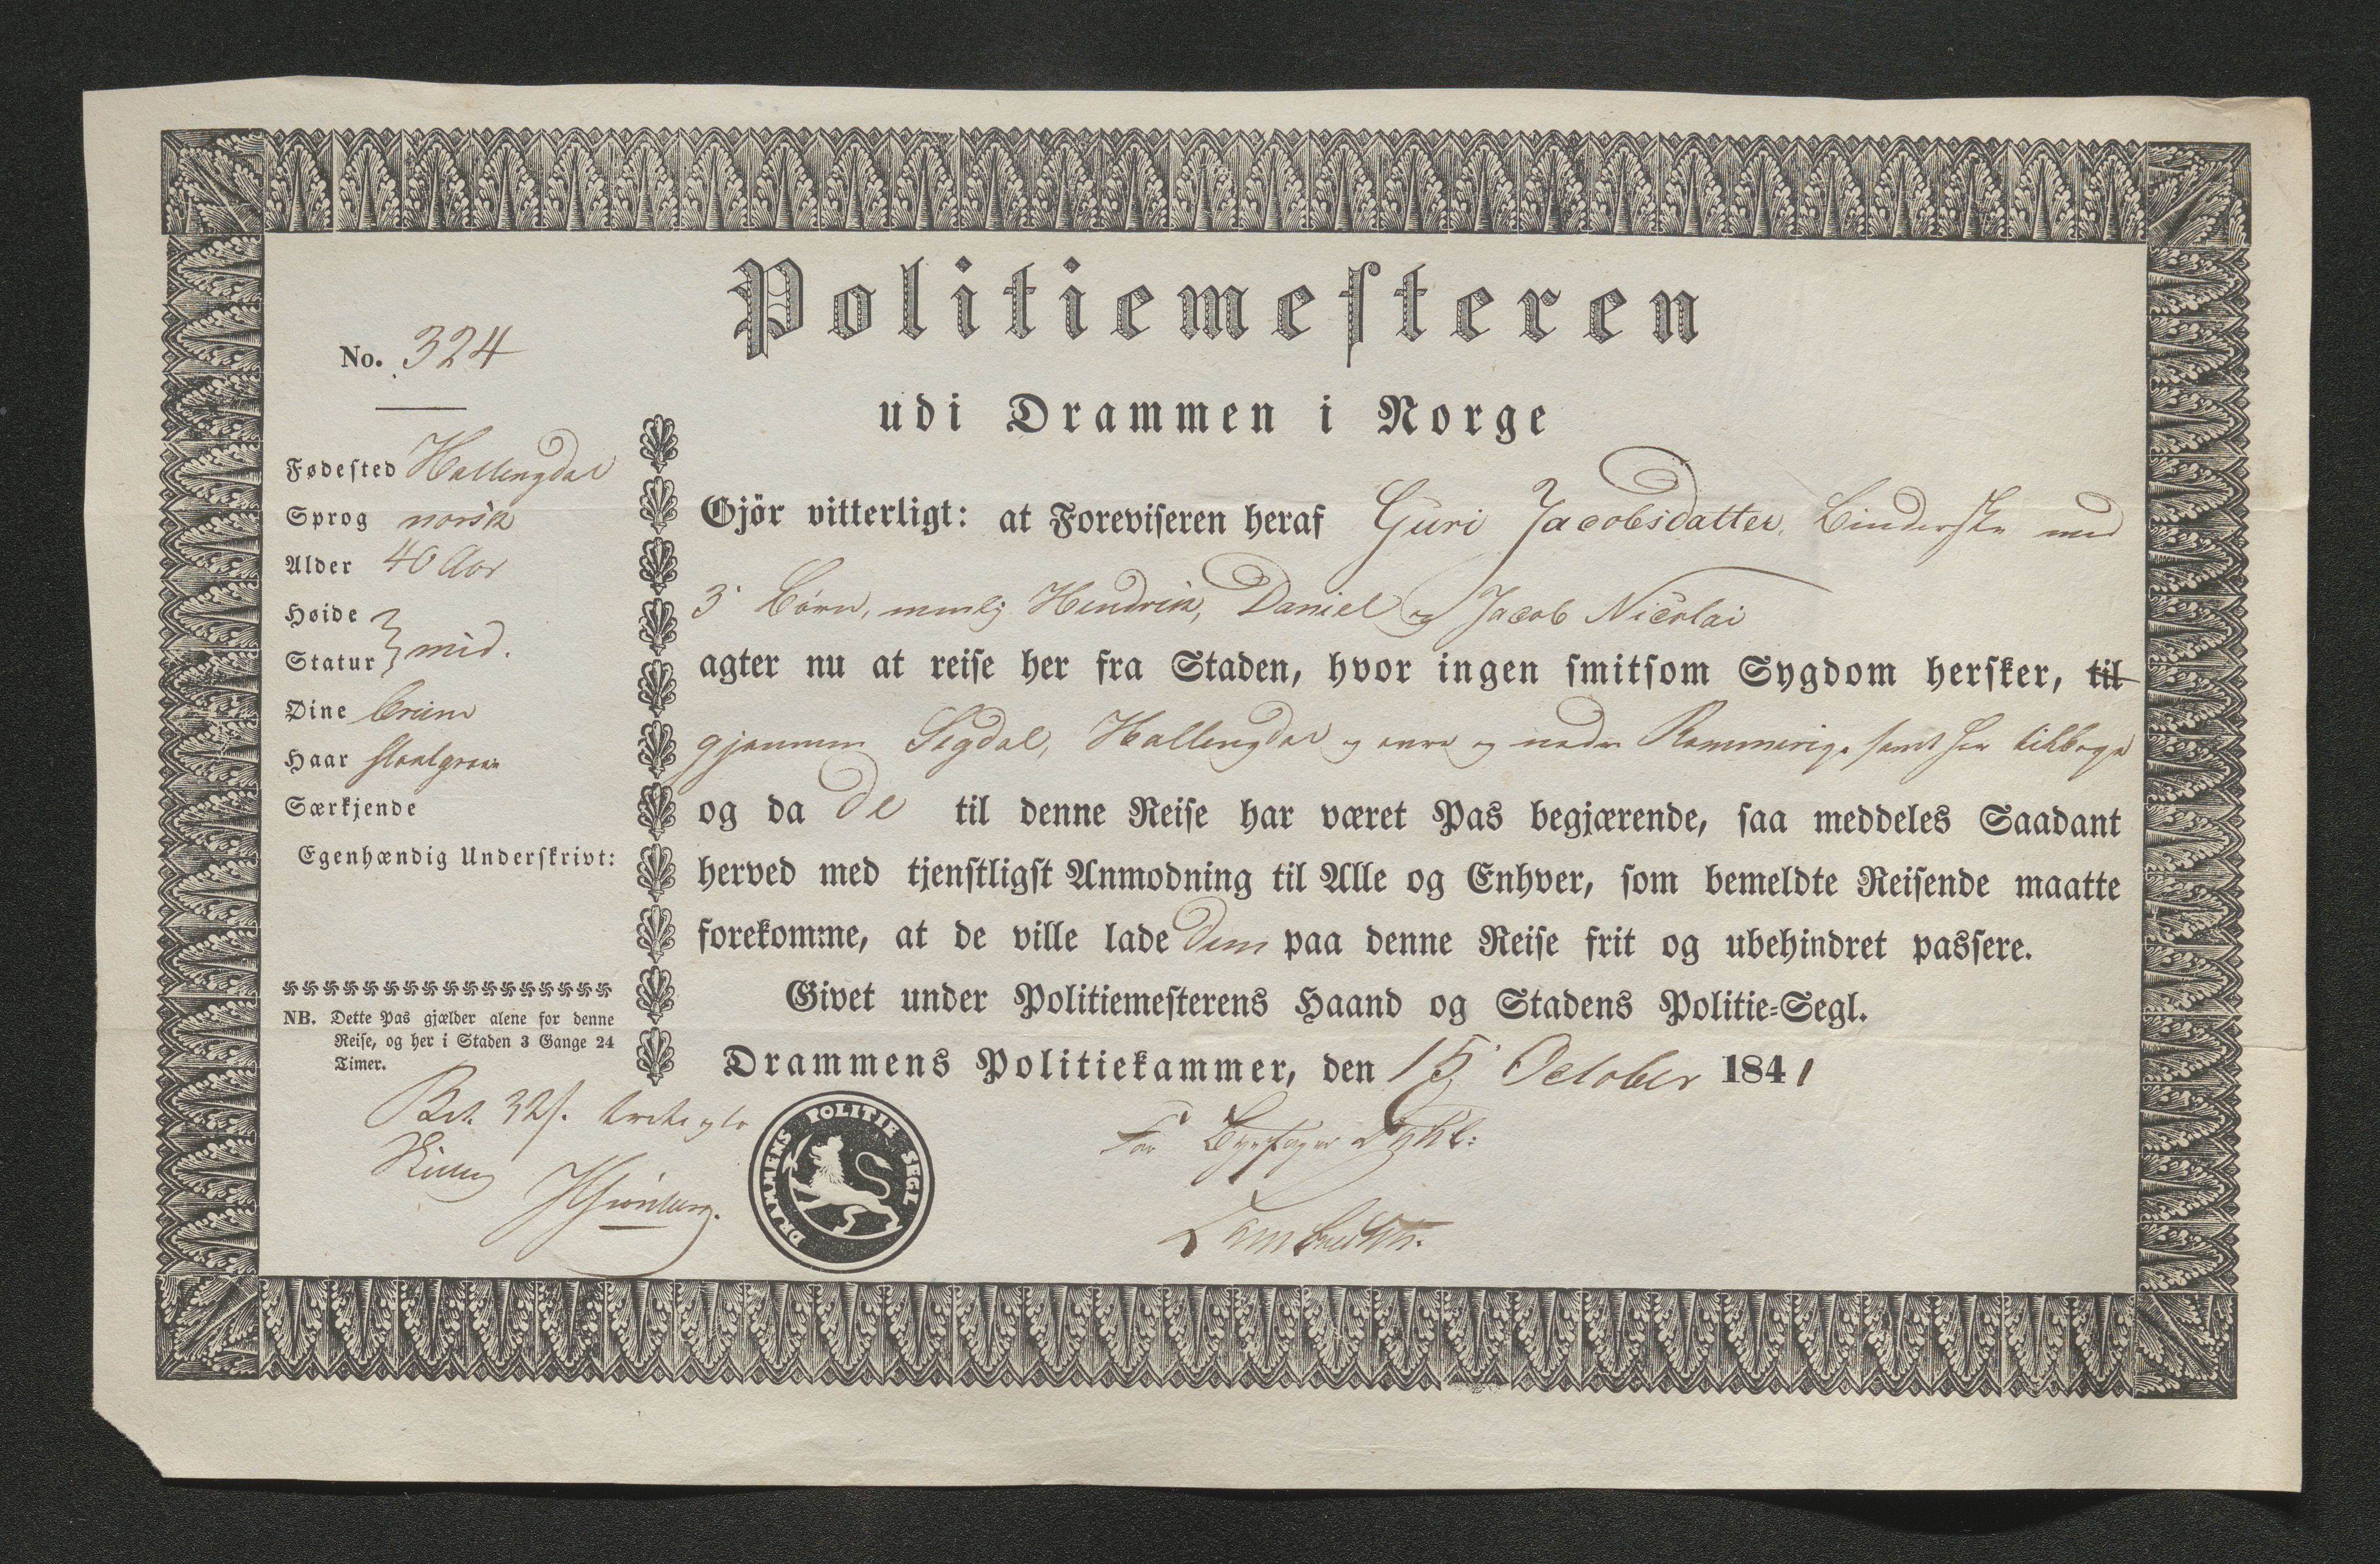 Politiemesteren
udi Drammen i Norge
No. 324
Fødested Hallingdal
Sprog norsk
Alder 40 Aar
Høide
Statur } mid.
Øine brune
Haar
Særkjende
Egenhændig Underskrivt:
NB. Dette Pas gjælder alene for denne
Reise, og her i Staden 3 Gange 24
Timer.
Bet. 32 s.
Skilling
Gjör vitterligt: at Foreviseren heraf Guri Jacobsdatter, Binderske med
3 Børn, nemlig Hendrik, Daniel og Jacob Nicolai
agter nu at reise her fra Staden, hvor ingen smitsom Sygdom hersker, til
gjennem Sigdal, Hallingdal og øvre og nedre Rommerige samt her tilbage
og da de til denne Reise har været Pas begjærende, saa meddeles Saadant
herved med tjenstligst Anmodning til Alle og Enhver, som bemeldte Reisende maatte
forekomme, at de ville lade dem paa denne Reise frit og ubehindret passere.
Givet under Politiemesterens Haand og Stadens Politie-Segl.
Drammens Politiekammer, den 15 October 1841
DRAMMENS POLITIE SEGL